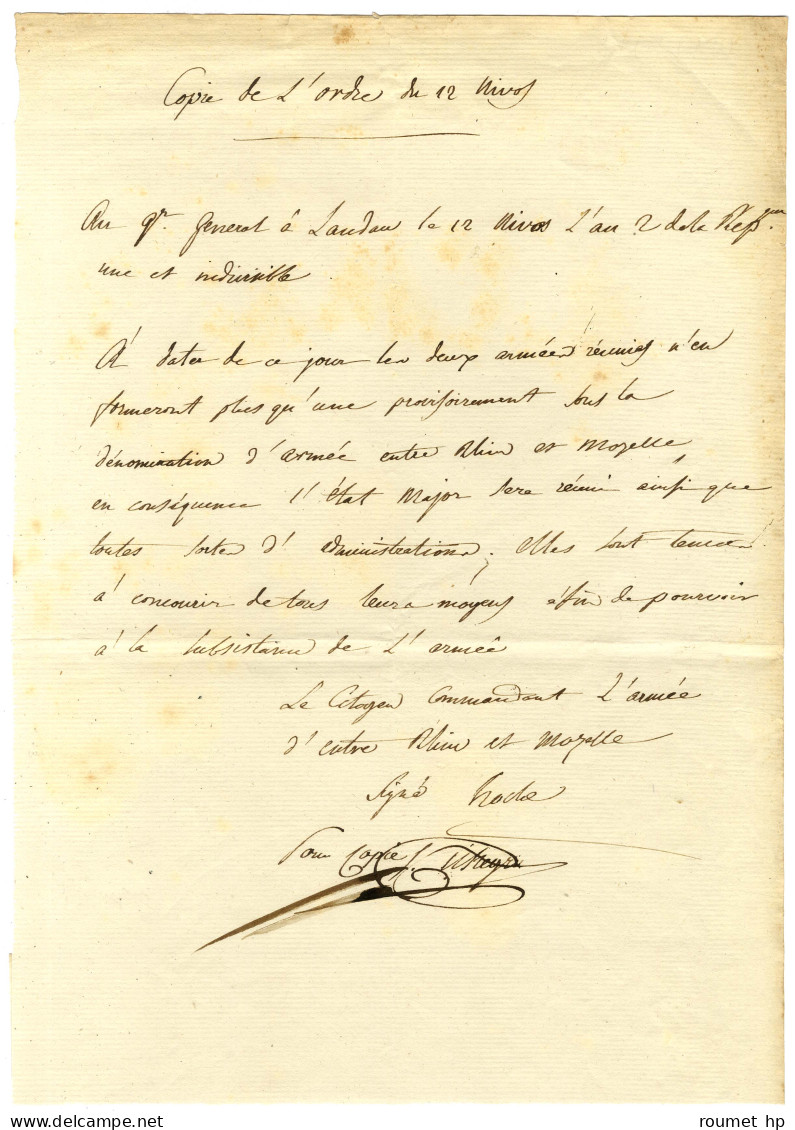 Copie de L'ordre du 12 Nivos
Au qr. general à Landau le 12 Nivos L'an 2 de la Rep.
une et indivisible
A dater de ce jour les deux armées réunies n'en
formeront plus qu'une provisoirement sous la
dénomination d'armée entre Rhin et Mozelle
en conséquence l'état Major sera réuni ainsi que
toutes sortes d'administrations. Elles sont tenues
à concourir de tous leurs moyens afin de pourvoir
à la subsistance de L'armée
Le Citoyen Commandant L'armée
d'entre Rhin et Mozelle
Signé hoche
Pour Copie
roumet hp